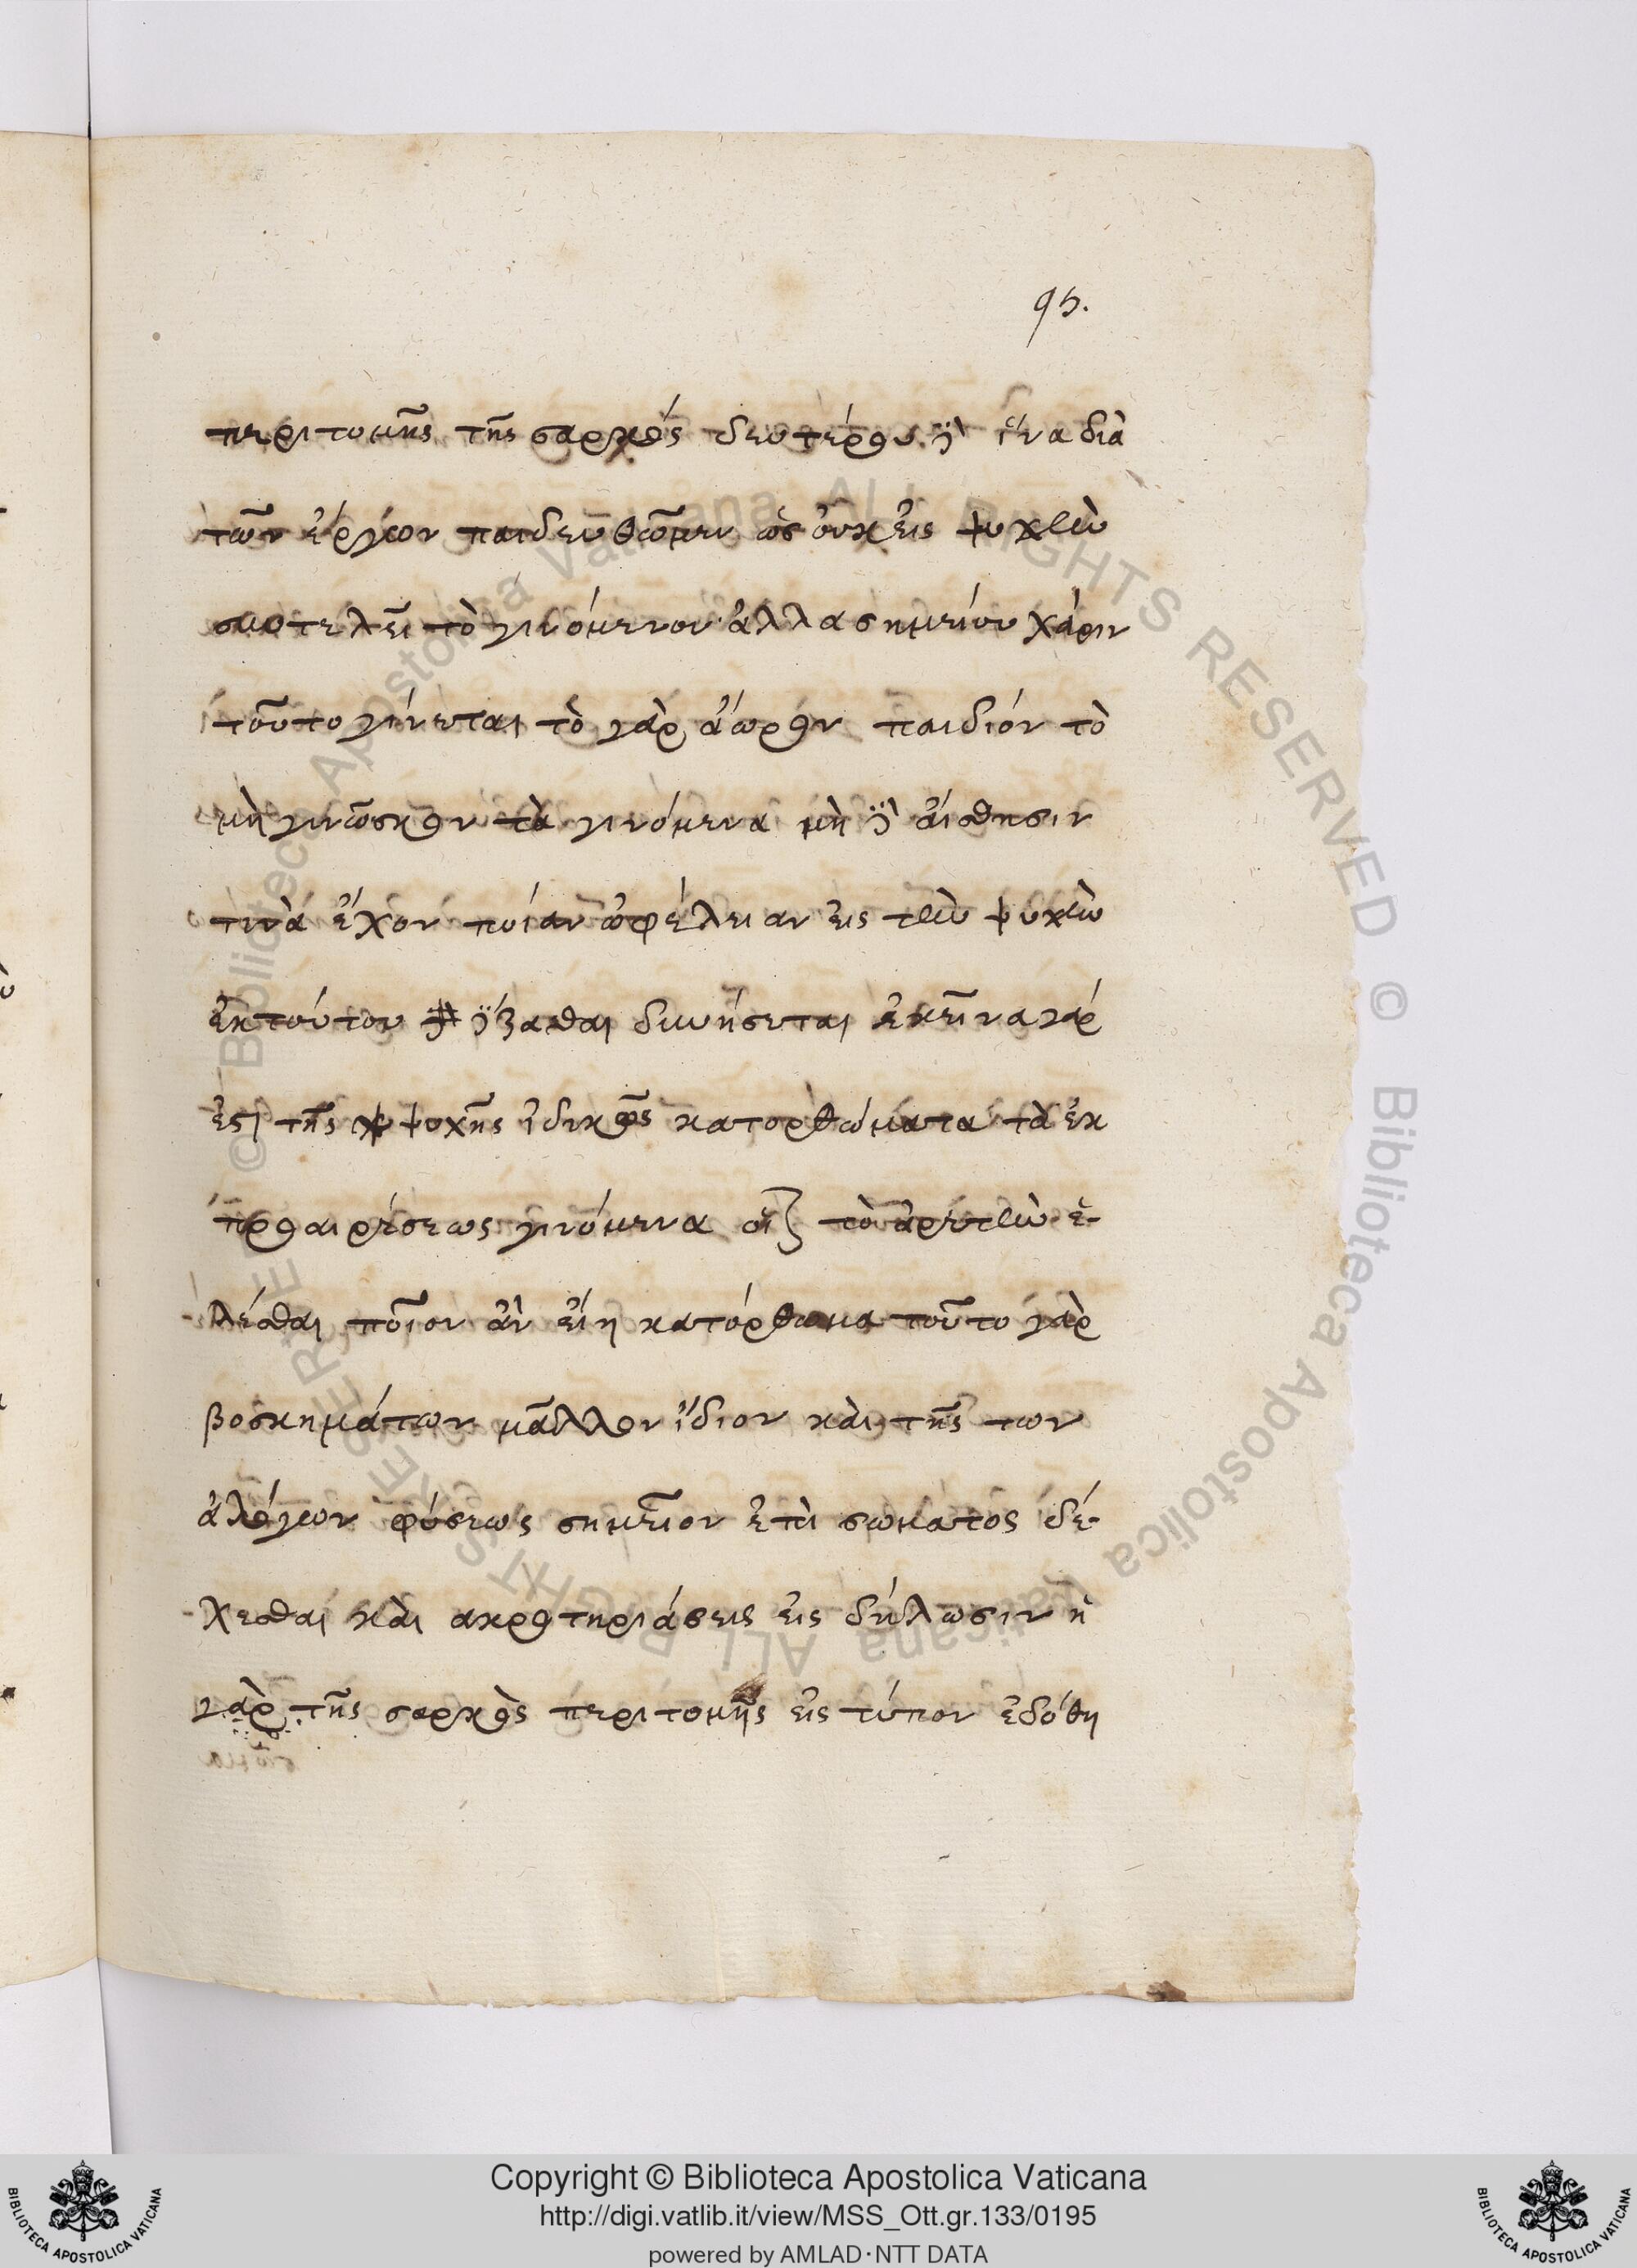 95.
περιτομῆς τῆς σαρκός δευτέρου δὲ ἵνα διὰ
τῶν ἔργων παιδευθῶμεν ὡς οὐκ εἰς ψυχὴν
συντελεῖ τὸ γινόμενον ἀλλα σημείου χάριν
τοῦτο γίνεται τὸ γὰρ ἄωρον παιδίον τὸ
μὴ γινῶσκον τὰ γινόμενα μὴ δὲ αἴσθησιν
τινὰ ἔχον ποίαν ὠφέλειαν εἰς τὴν ψυχὴν
ἐκ τούτου δέξασθαι δυνήσεται ἐκεῖνα γάρ
ἐστι τῆς ψυχῆς ἰδικῶς κατορθώματα τὰ ἐκ
προαιρέσεως γινόμενα οἷον τὸ ἀρετὴν ἑ-
λέσθαι ποῖον ἂν εἴη κατόρθωμα τοῦτο γὰρ
βοσκημάτων μᾶλλον ἴδιον καὶ τῆς των
ἀλόγων φύσεως σημεῖον ἐπὶ σώματος δέ-
χεσθαι καὶ ακροτηριάσεις εἰς δήλωσιν ἡ
γὰρ τῆς σαρκὸς περιτομῆς εἰς τύπον ἐδόθη
Copyright © Biblioteca Apostolica Vaticana
http://digi.vatlib.it/view/MSS_Ott.gr.133/0195
powered by AMLAD·NTT DATA
BIBLIOTECA APOSTOLICA VATICANA
BIBLIOTECA APOSTOLICA VATICANA
© Biblioteca Apostolica Vaticana ALL RIGHTS RESERVED © Biblioteca Apostolica Vaticana ALL RIGHTS RESERVED